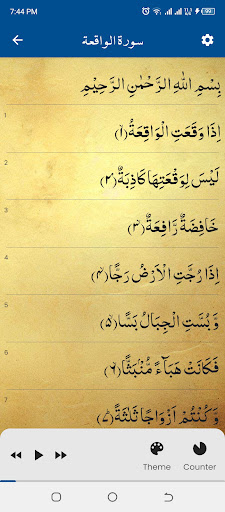 7:44 PM
99
سورة الواقعة
بِسْمِ اللهِ الرَّحْمٰنِ الرَّحِيْمِ
إِذَا وَقَعَتِ الْوَاقِعَةُ ﴿١﴾
1
لَيْسَ لِوَقْعَتِهَا كَاذِبَةٌ ﴿٢﴾
2
خَافِضَةٌ رَّافِعَةٌ ﴿٣﴾
3
إِذَا رُجَّتِ الْاَرْضُ رَجًّا ﴿٤﴾
4
وَّبُسَّتِ الْجِبَالُ بَسًّا ﴿٥﴾
5
فَكَانَتْ هَبَآءً مُّنْبَثًّا ﴿٦﴾
6
وَّكُنْتُمْ اَزْوَاجًا ثَلٰثَةً ﴿٧﴾
7
Theme
Counter